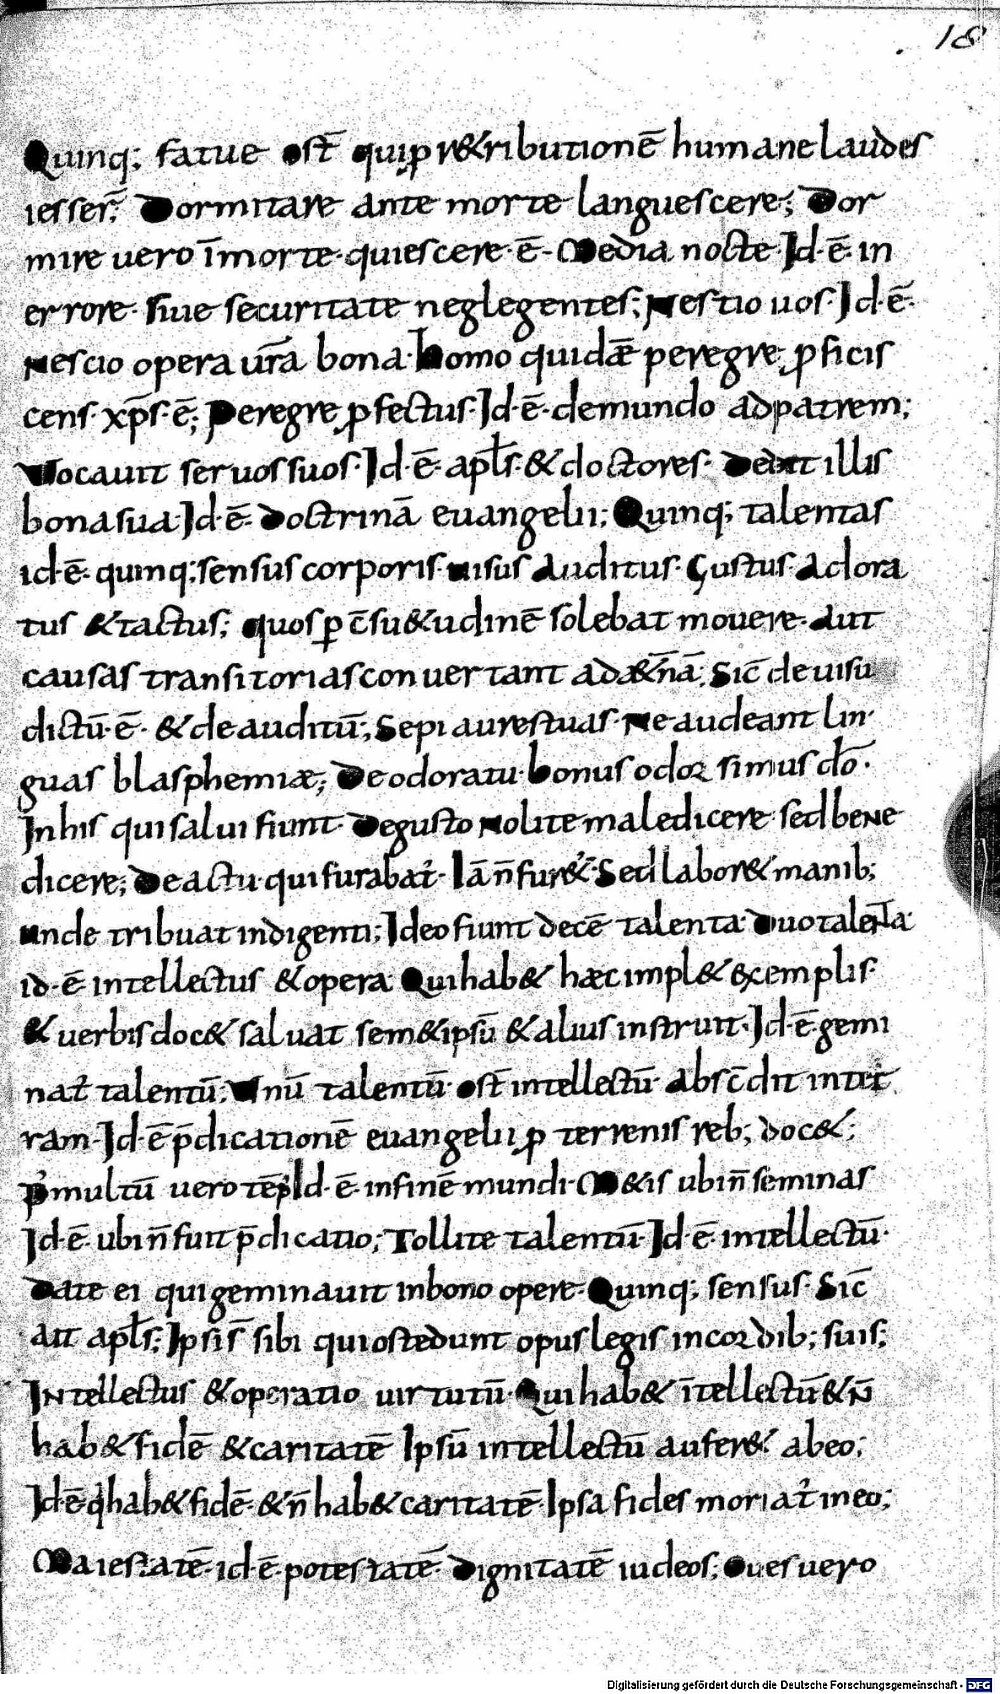 18
Quinq; fatue ost̄ qui ꝑ r&ributionē humane laudes
iesser̄; Dormitare ante morte languescere; Dor
mire uero īmorte· quiescere· ē· Media nocte· Id· ē· in
errore· siue securitate neglegentes; Nestio uos· Id· ē·
Nescio opera ur̄a bona· homo quidā peregre ꝓficis
cens· xp̄s· ē; Peregre ꝓfectus· Id· ē· demundo adpatrem;
Vocauit seruos suos· Id· ē· apl̄s· & doctores· Dedit illis
bona sua· Id· ē· Doctrinā euangelii; Quinq; talentas
id· ē· quinq; sensus corporis· uisus Auditus· Gustus· Adora
tus &tactus; quos ꝑ c̄su&udinē solebat mouere· Aut
causas transitorias conuertant ad&̄nā; Sic̄ de uisu
dictū· ē· & de auditū; Sepi aures tuas· Ne audeant lin·
guas blasphemiæ; De odoratu· bonus odor simus dō·
In his qui salui fiunt· De gusto Nolite maledicere· sed bene
dicere; De actu· qui furabat᷑· Iā n̄ fur&᷑· Sed labor& manib;
unde tribuat indigenti; Ideo fiunt decē talenta· Duo talenta·
id· ē· intellectus &opera· Qui hab& hæc impl& exemplis·
& uerbis doc& saluat sem&ipsū & alius instruit· Id· ē· gemi
nat᷑ talentū; Vnū talentū ost̄ intellectū· Absc̄dit inter
ram· Id· ē p̄dicationē euangelii ꝓ terrenis reb; doc&;
P᷑ multū uero tēp᷑ Id· ē· in finē mundi· M&is ubi n̄ seminas
Id· ē· ubi n̄ fuit p̄dicatio; Tollite talentū· Id· ē· intellectū·
Date ei qui geminauit in bono opere· Quinq; sensus· Sic̄
ait apl̄s; Ipsis̄ sibi qui ostedunt opus legis in cordib; suis;
Intellectus &operatio uirtutū· Qui hab& ītellectū & n̄
hab& fidē &caritatē Ipsū intellectū aufer&᷑ ab eo;
Id· ē· q hab& fidē· & n̄ hab& caritatē· Ipsa fides moriat᷑ in eo;
Maiestatē· id· ē· potestatē· Dignitatē iudeos; Oues uero
Digitalisierung gefördert durch die Deutsche Forschungsgemeinschaft - DFG